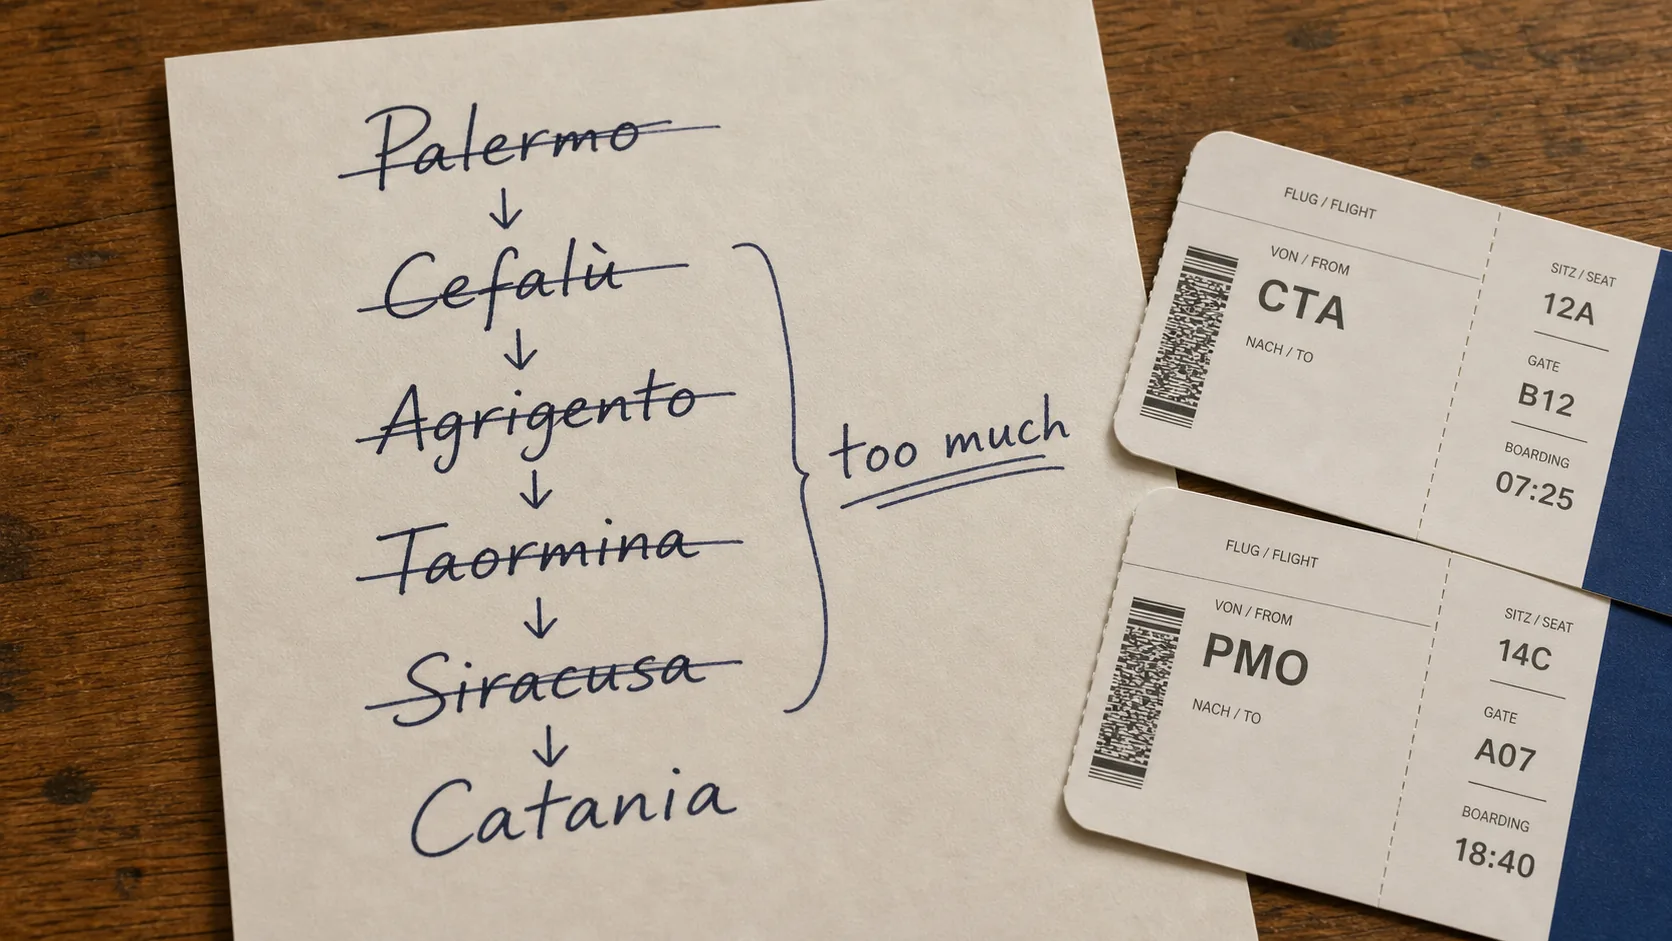 Palermo
↓
Cefalù
↓
Agrigento
↓
Taormina
↓
Siracusa
↓
Catania
too much
FLUG / FLIGHT
VON / FROM
CTA
NACH / TO
SITZ / SEAT
12A
GATE
B12
BOARDING
07:25
FLUG / FLIGHT
VON / FROM
PMO
NACH / TO
SITZ / SEAT
14C
GATE
A07
BOARDING
18:40